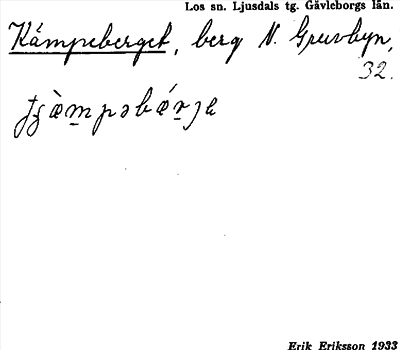 Los sn. Ljusdals tg. Gävleborgs län.
Kämpeberget, berg N. Gruvbyn,
32.
Erik Eriksson 1933